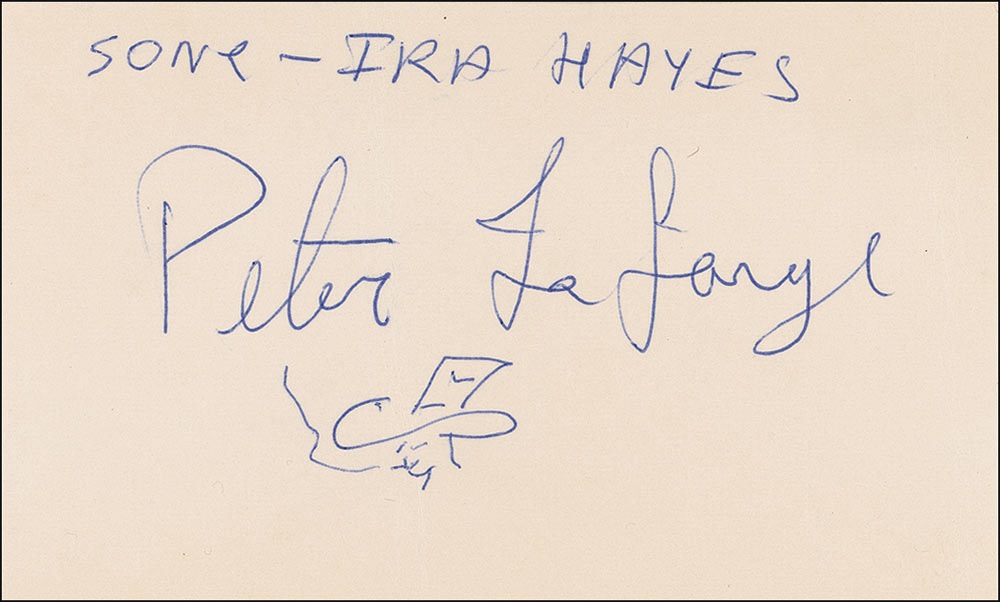 SONG - IRA HAYES
Peter La Farge